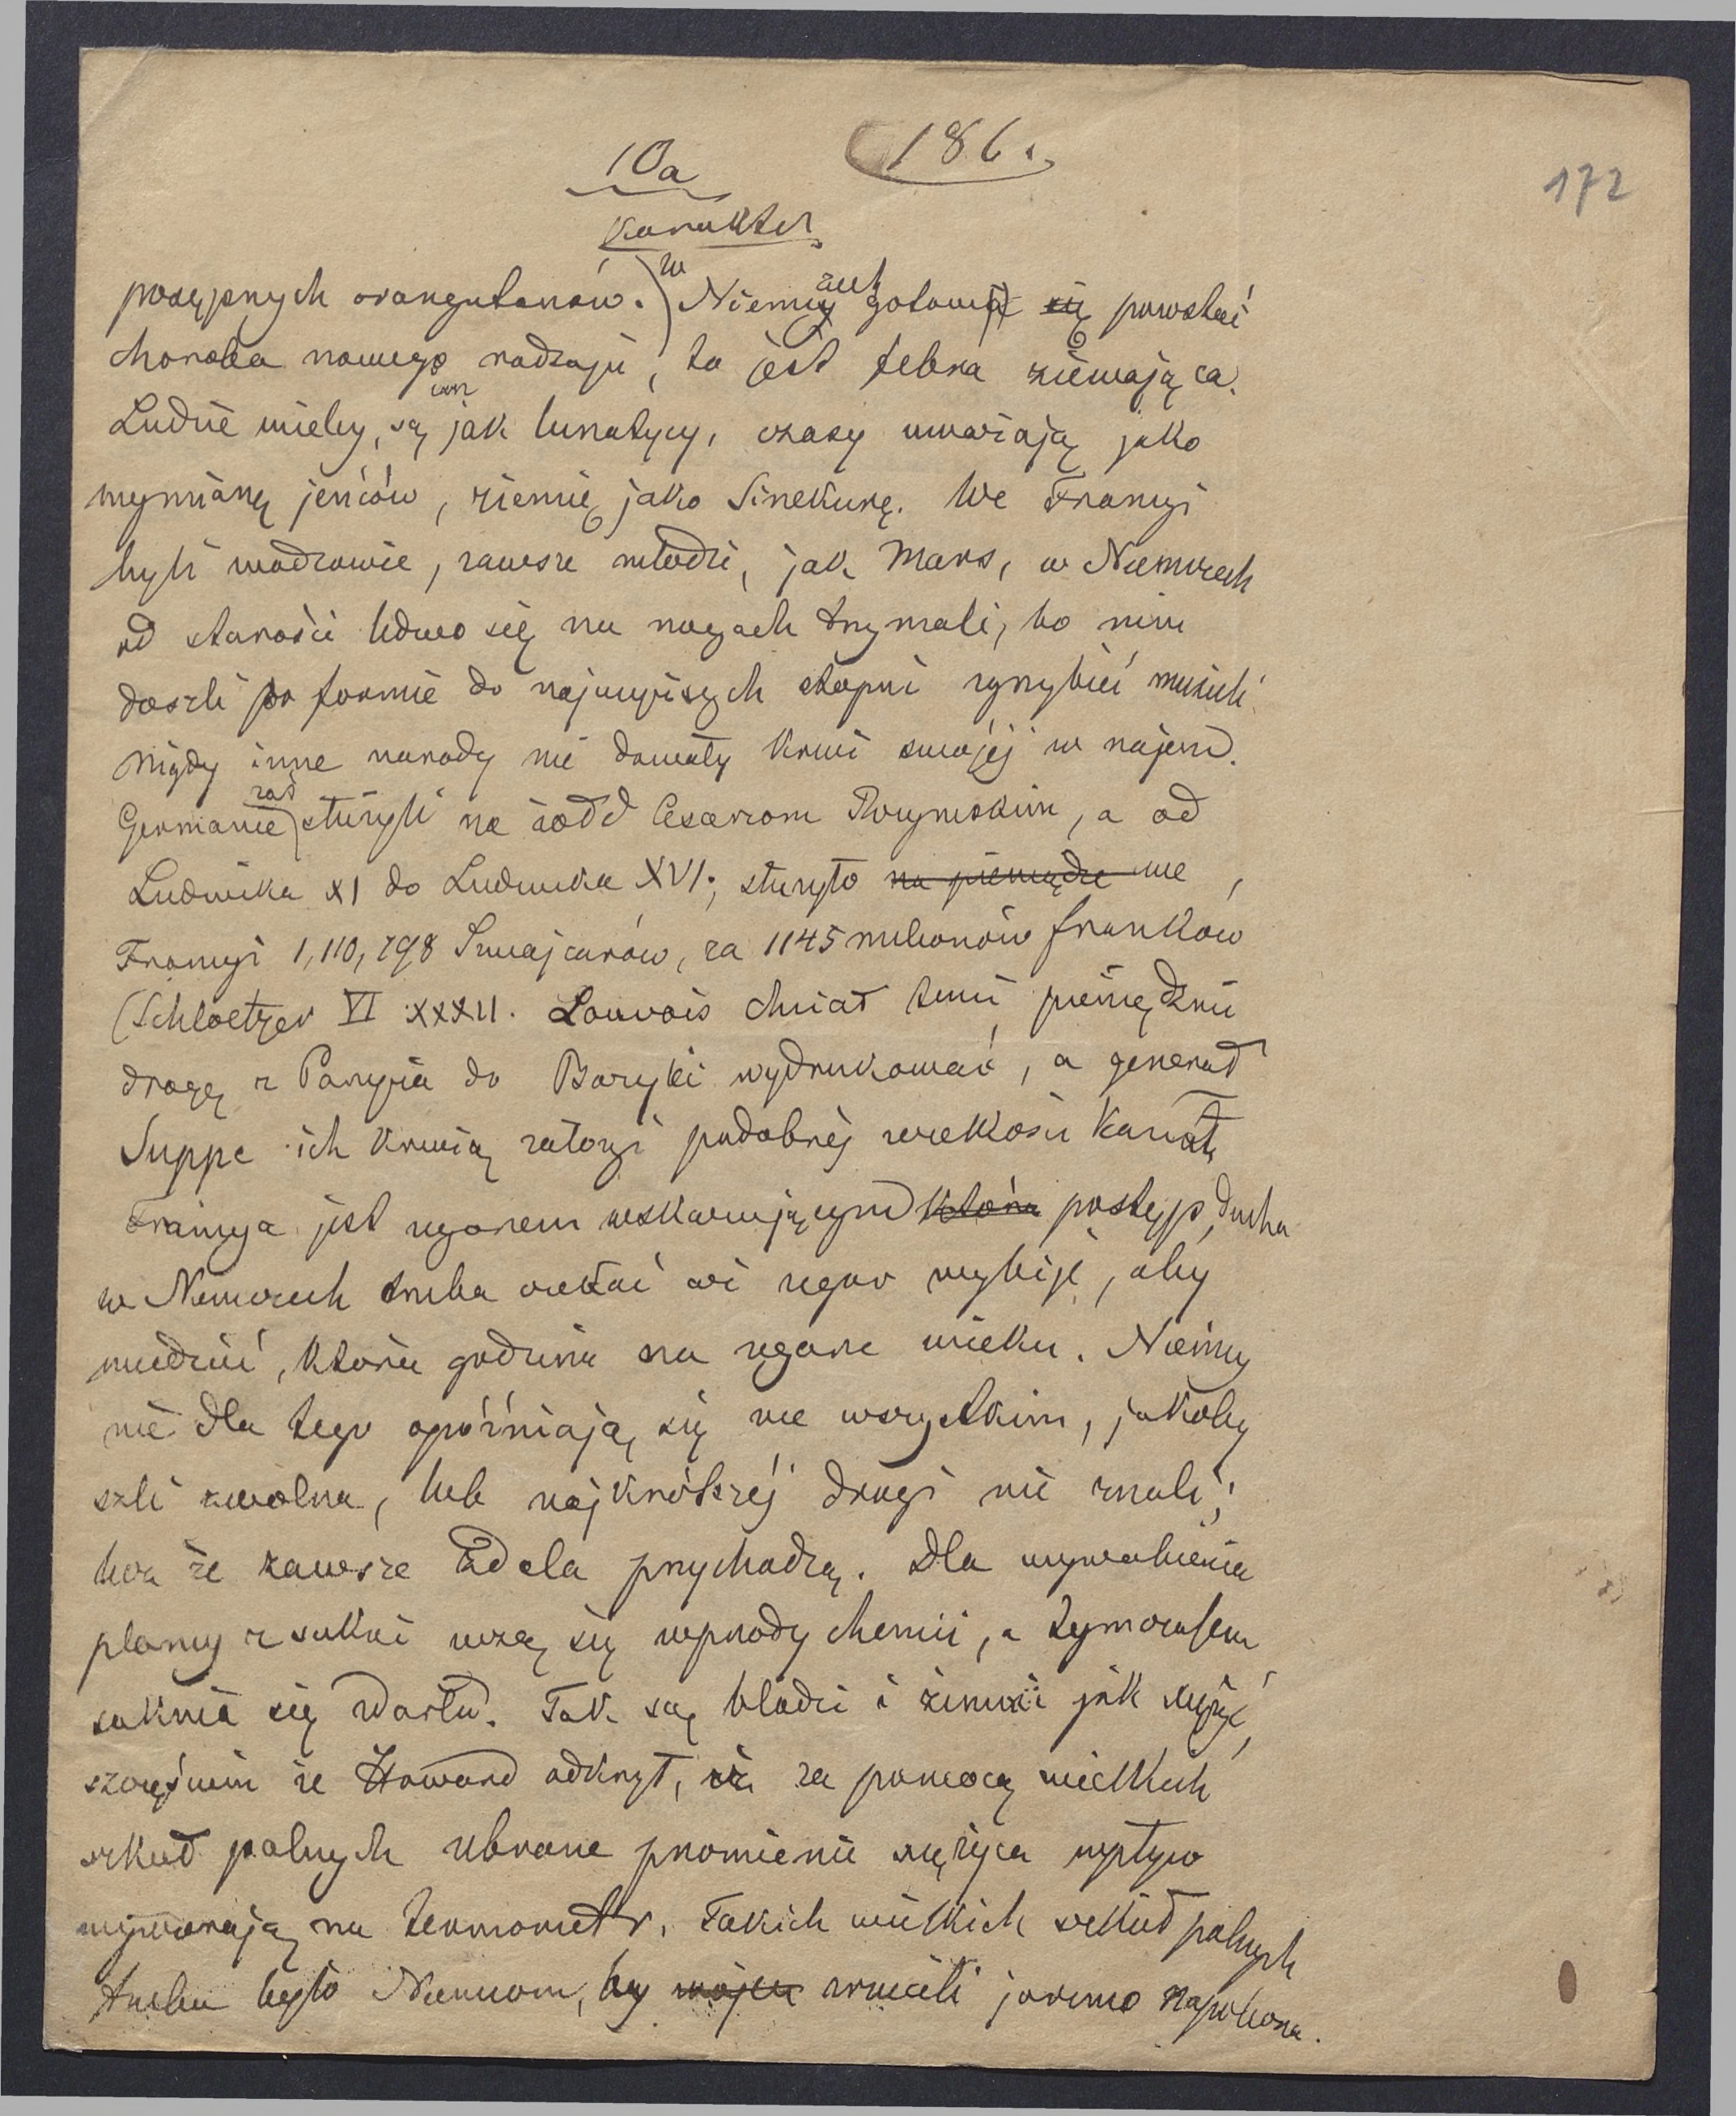 10a
186.
172
Karakter
posępnych orangutanów. w Niemczech gotowa się powstać
choroba nowego rodzaju, to jest febra ziewająca.
Ludzie wielcy, są jak lunatycy, czasy uważają jako
wymianę jeńców, ziemię jako Sinekurę. We Francyi
byli wodzowie, zawsze młodzi, jak Mars, w Niemczech
od starości ledwo się na nogach trzymali, bo nim
doszli po formie do najwyższych stopni zgrzybieć musieli.
Nigdy inne narody nie dawały krwi swojej w najem.
Germanie zaś służyli na żołd Cesarzom Rzymskim, a od
Ludwika XI do Ludwika XVI; służyło na pieniądze we
Francyi 1,110,798 Szwajcarów, za 1145 milionów franków
(Schloetzer VI XXXII. Louvois chciał temi pieniędzmi
drogę z Paryża do Bazylei wydrukować, a generał
Suppe ich krwią zatorzi podobnej wielkości kanał,
Francya jest zegarem wskazującym która postęp, ducha
w Niemczech trzeba czekać aż zegar wybije, aby
wiedzieć, która godzina na zegarze wieku. Niemcy
nie dla tego opóźniają się we wszystkim, jakoby
szli zwolna, lub najkrótszej drogi nie znali;
lecz że zawsze zdala przychodzą. Dla wywabienia
plamy z sukni uczą się wprzódy chemii, a tymczasem
suknia się zdarła. Tak są bladzi i zimni jak księżyc,
szczęściem że Howard odkrył, iż za pomocą wielkich
szkieł palnych zbrane promienie księżyca wpływ
wywierają na termometr. Takich wielkich szkieł palnych
trzeba było Niemcom, by wojen zrzucili jarzmo Napoleona.